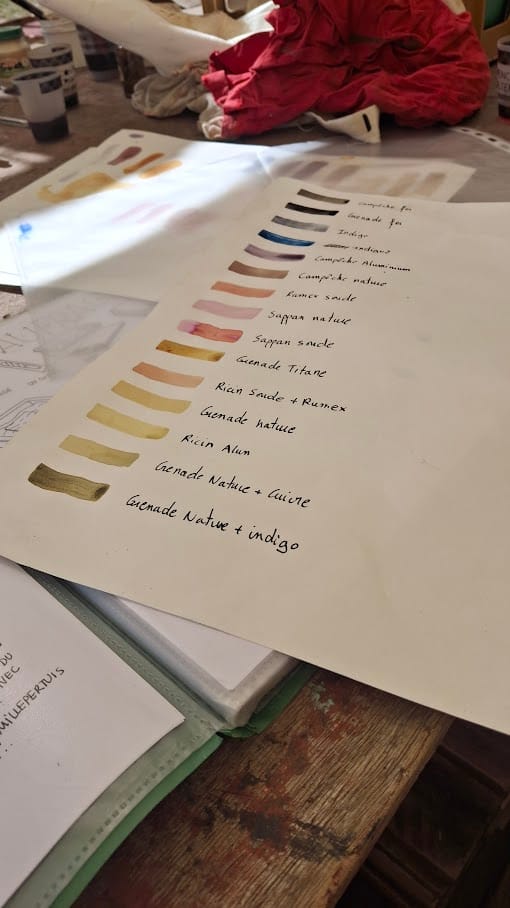 Campêche fer
Grenade fer
Indigo
Campêche Aluminium
Campêche nature
Rumex soude
Sappan nature
Sappan soude
Grenade Titane
Ricin Soude + Rumex
Grenade nature
Ricin Alun
Grenade Nature + Cuivre
Grenade Nature + indigo
DU
AVEC
MILLEPERTUIS